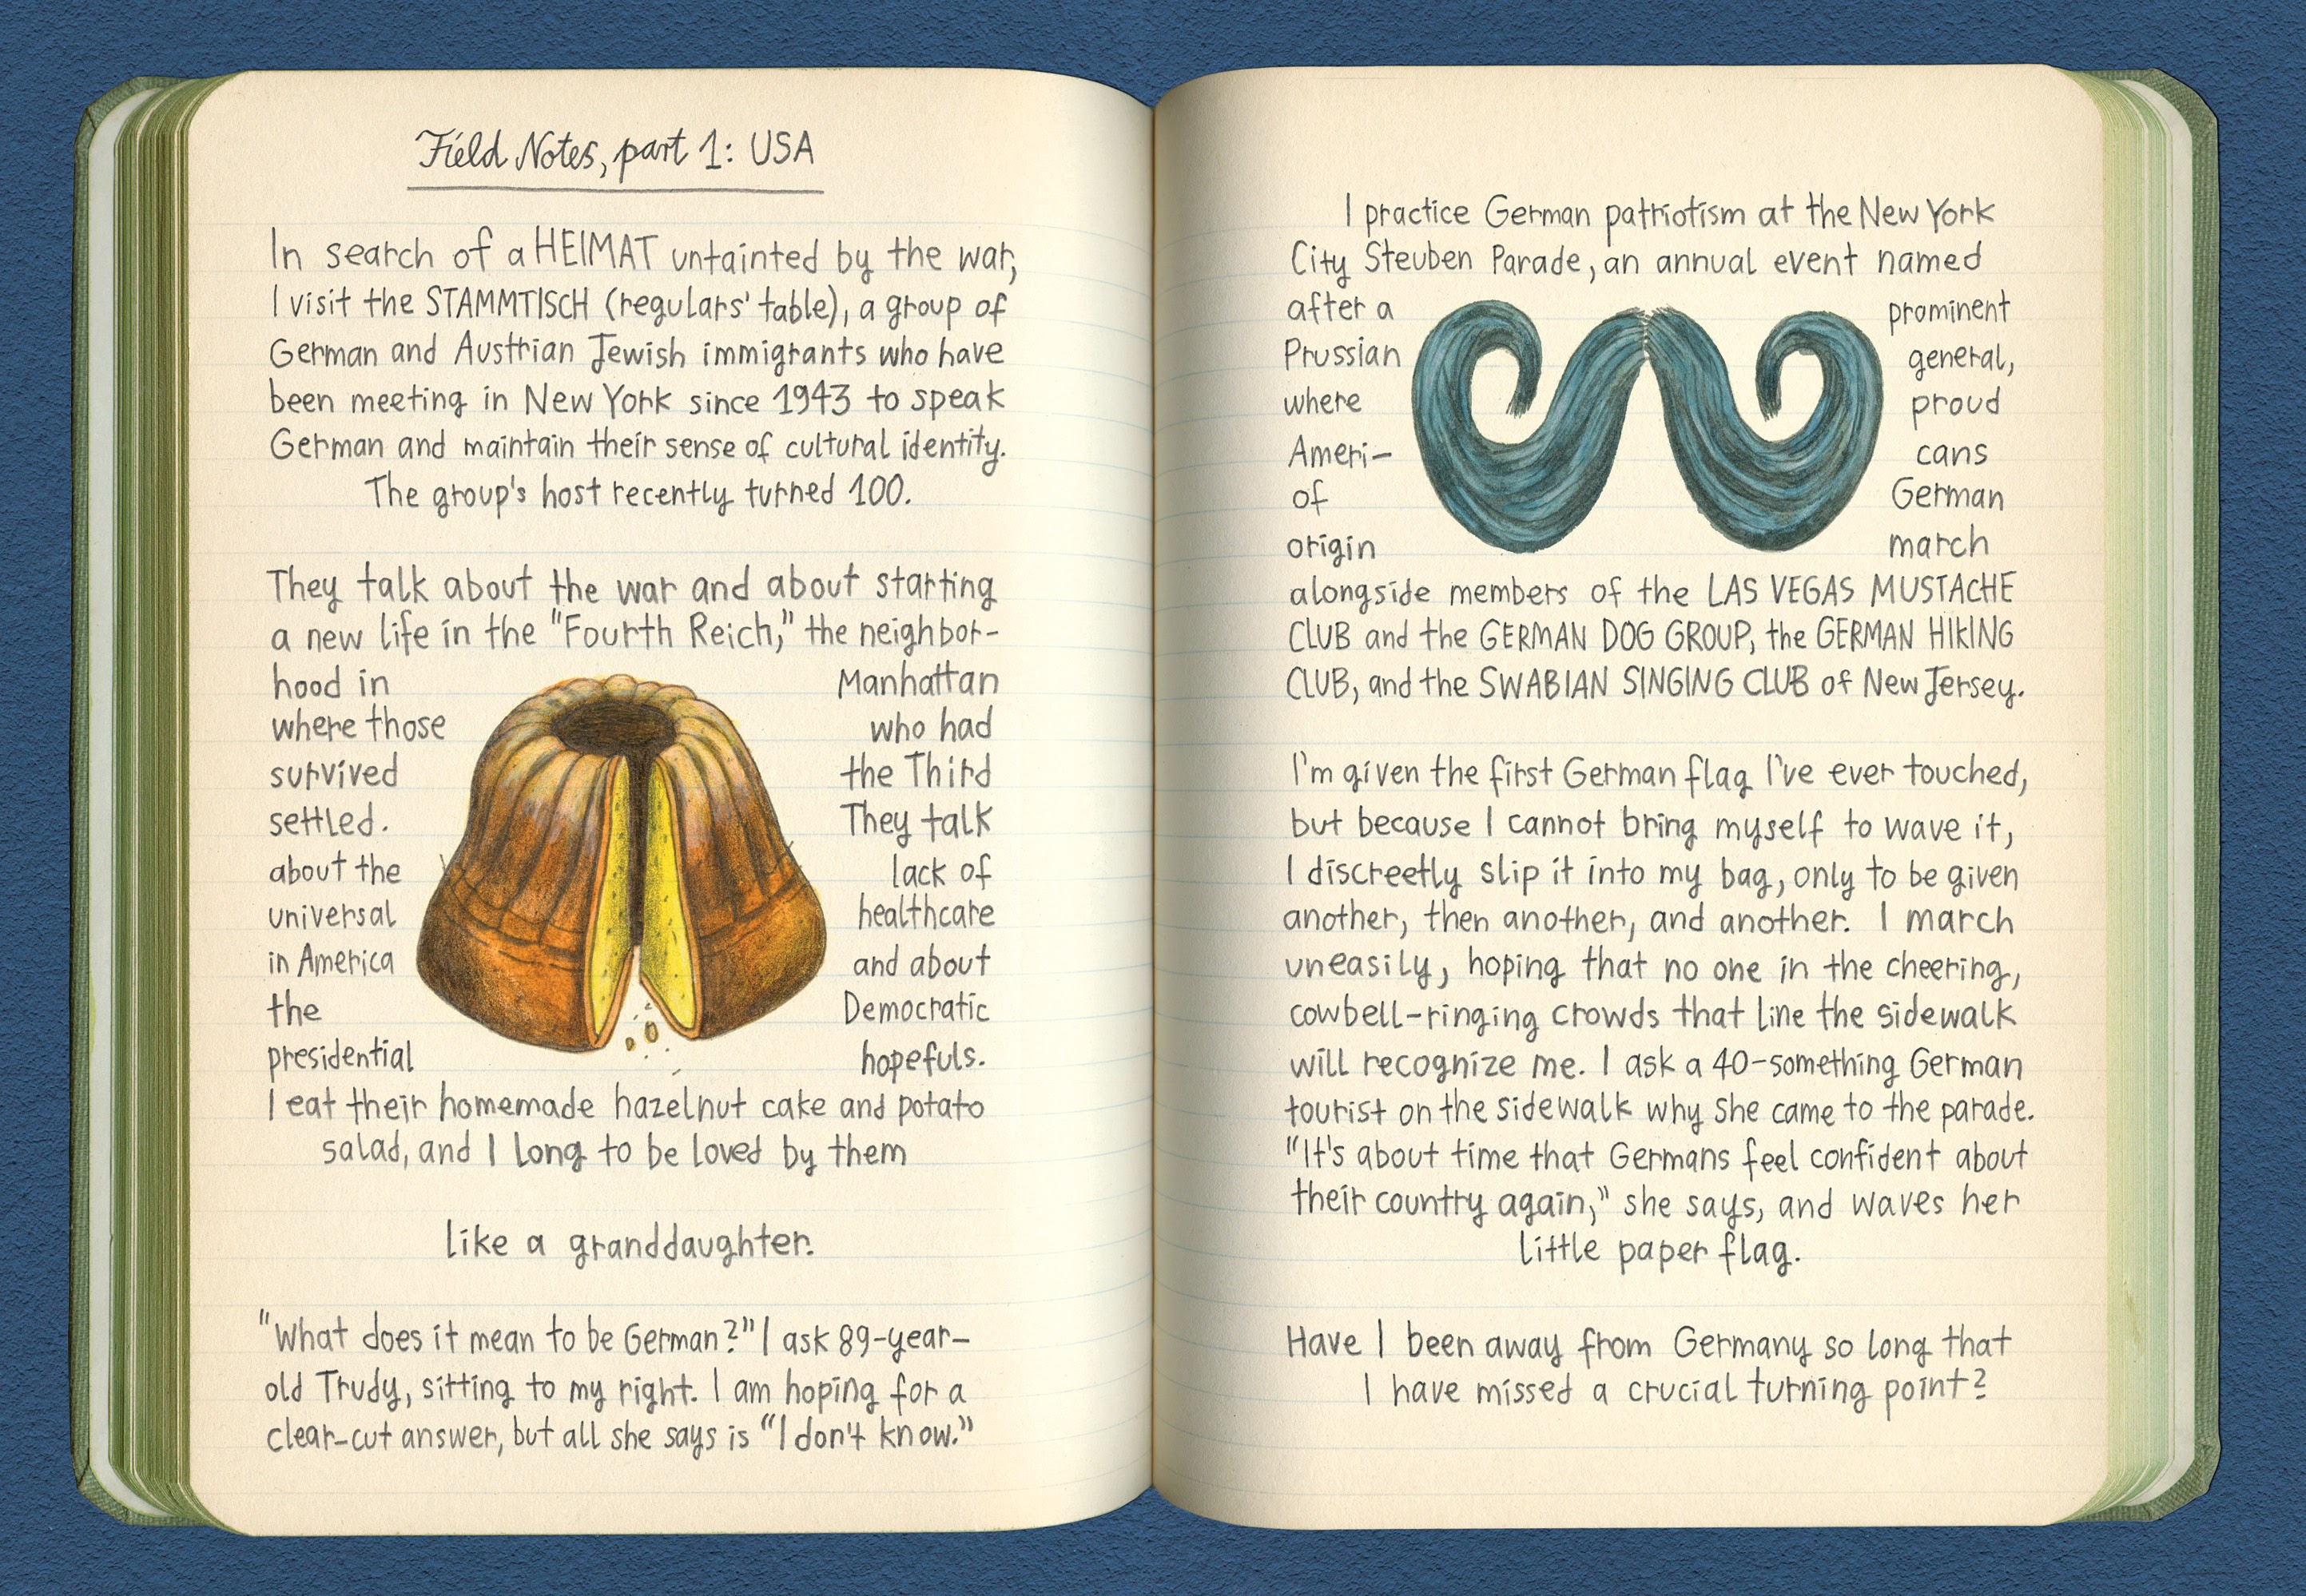 Field Notes, part 1: USA
In search of a HEIMAT untainted by the war,
I visit the STAMMTISCH (regulars' table), a group of
German and Austrian Jewish immigrants who have
been meeting in New York since 1943 to speak
German and maintain their sense of cultural identity.
The group's host recently turned 100.
They talk about the war and about starting
a new life in the "Fourth Reich," the neighbor-
hood in Manhattan
where those who had
survived the Third
settled. They talk
about the lack of
universal healthcare
in America and about
the Democratic
presidential hopefuls.
I eat their homemade hazelnut cake and potato
salad, and I long to be loved by them
like a granddaughter.
"What does it mean to be German?" I ask 89-year-
old Trudy, sitting to my right. I am hoping for a
clear-cut answer, but all she says is "I don't know."
I practice German patriotism at the New York
City Steuben Parade, an annual event named
after a prominent
Prussian general,
where proud
Ameri- cans
of German
origin march
alongside members of the LAS VEGAS MUSTACHE
CLUB and the GERMAN DOG GROUP, the GERMAN HIKING
CLUB, and the SWABIAN SINGING CLUB of New Jersey.
I'm given the first German flag I've ever touched,
but because I cannot bring myself to wave it,
I discreetly slip it into my bag, only to be given
another, then another, and another. I march
uneasily, hoping that no one in the cheering,
cowbell-ringing crowds that line the sidewalk
will recognize me. I ask a 40-something German
tourist on the sidewalk why she came to the parade.
"It's about time that Germans feel confident about
their country again," she says, and waves her
little paper flag.
Have I been away from Germany so long that
I have missed a crucial turning point?